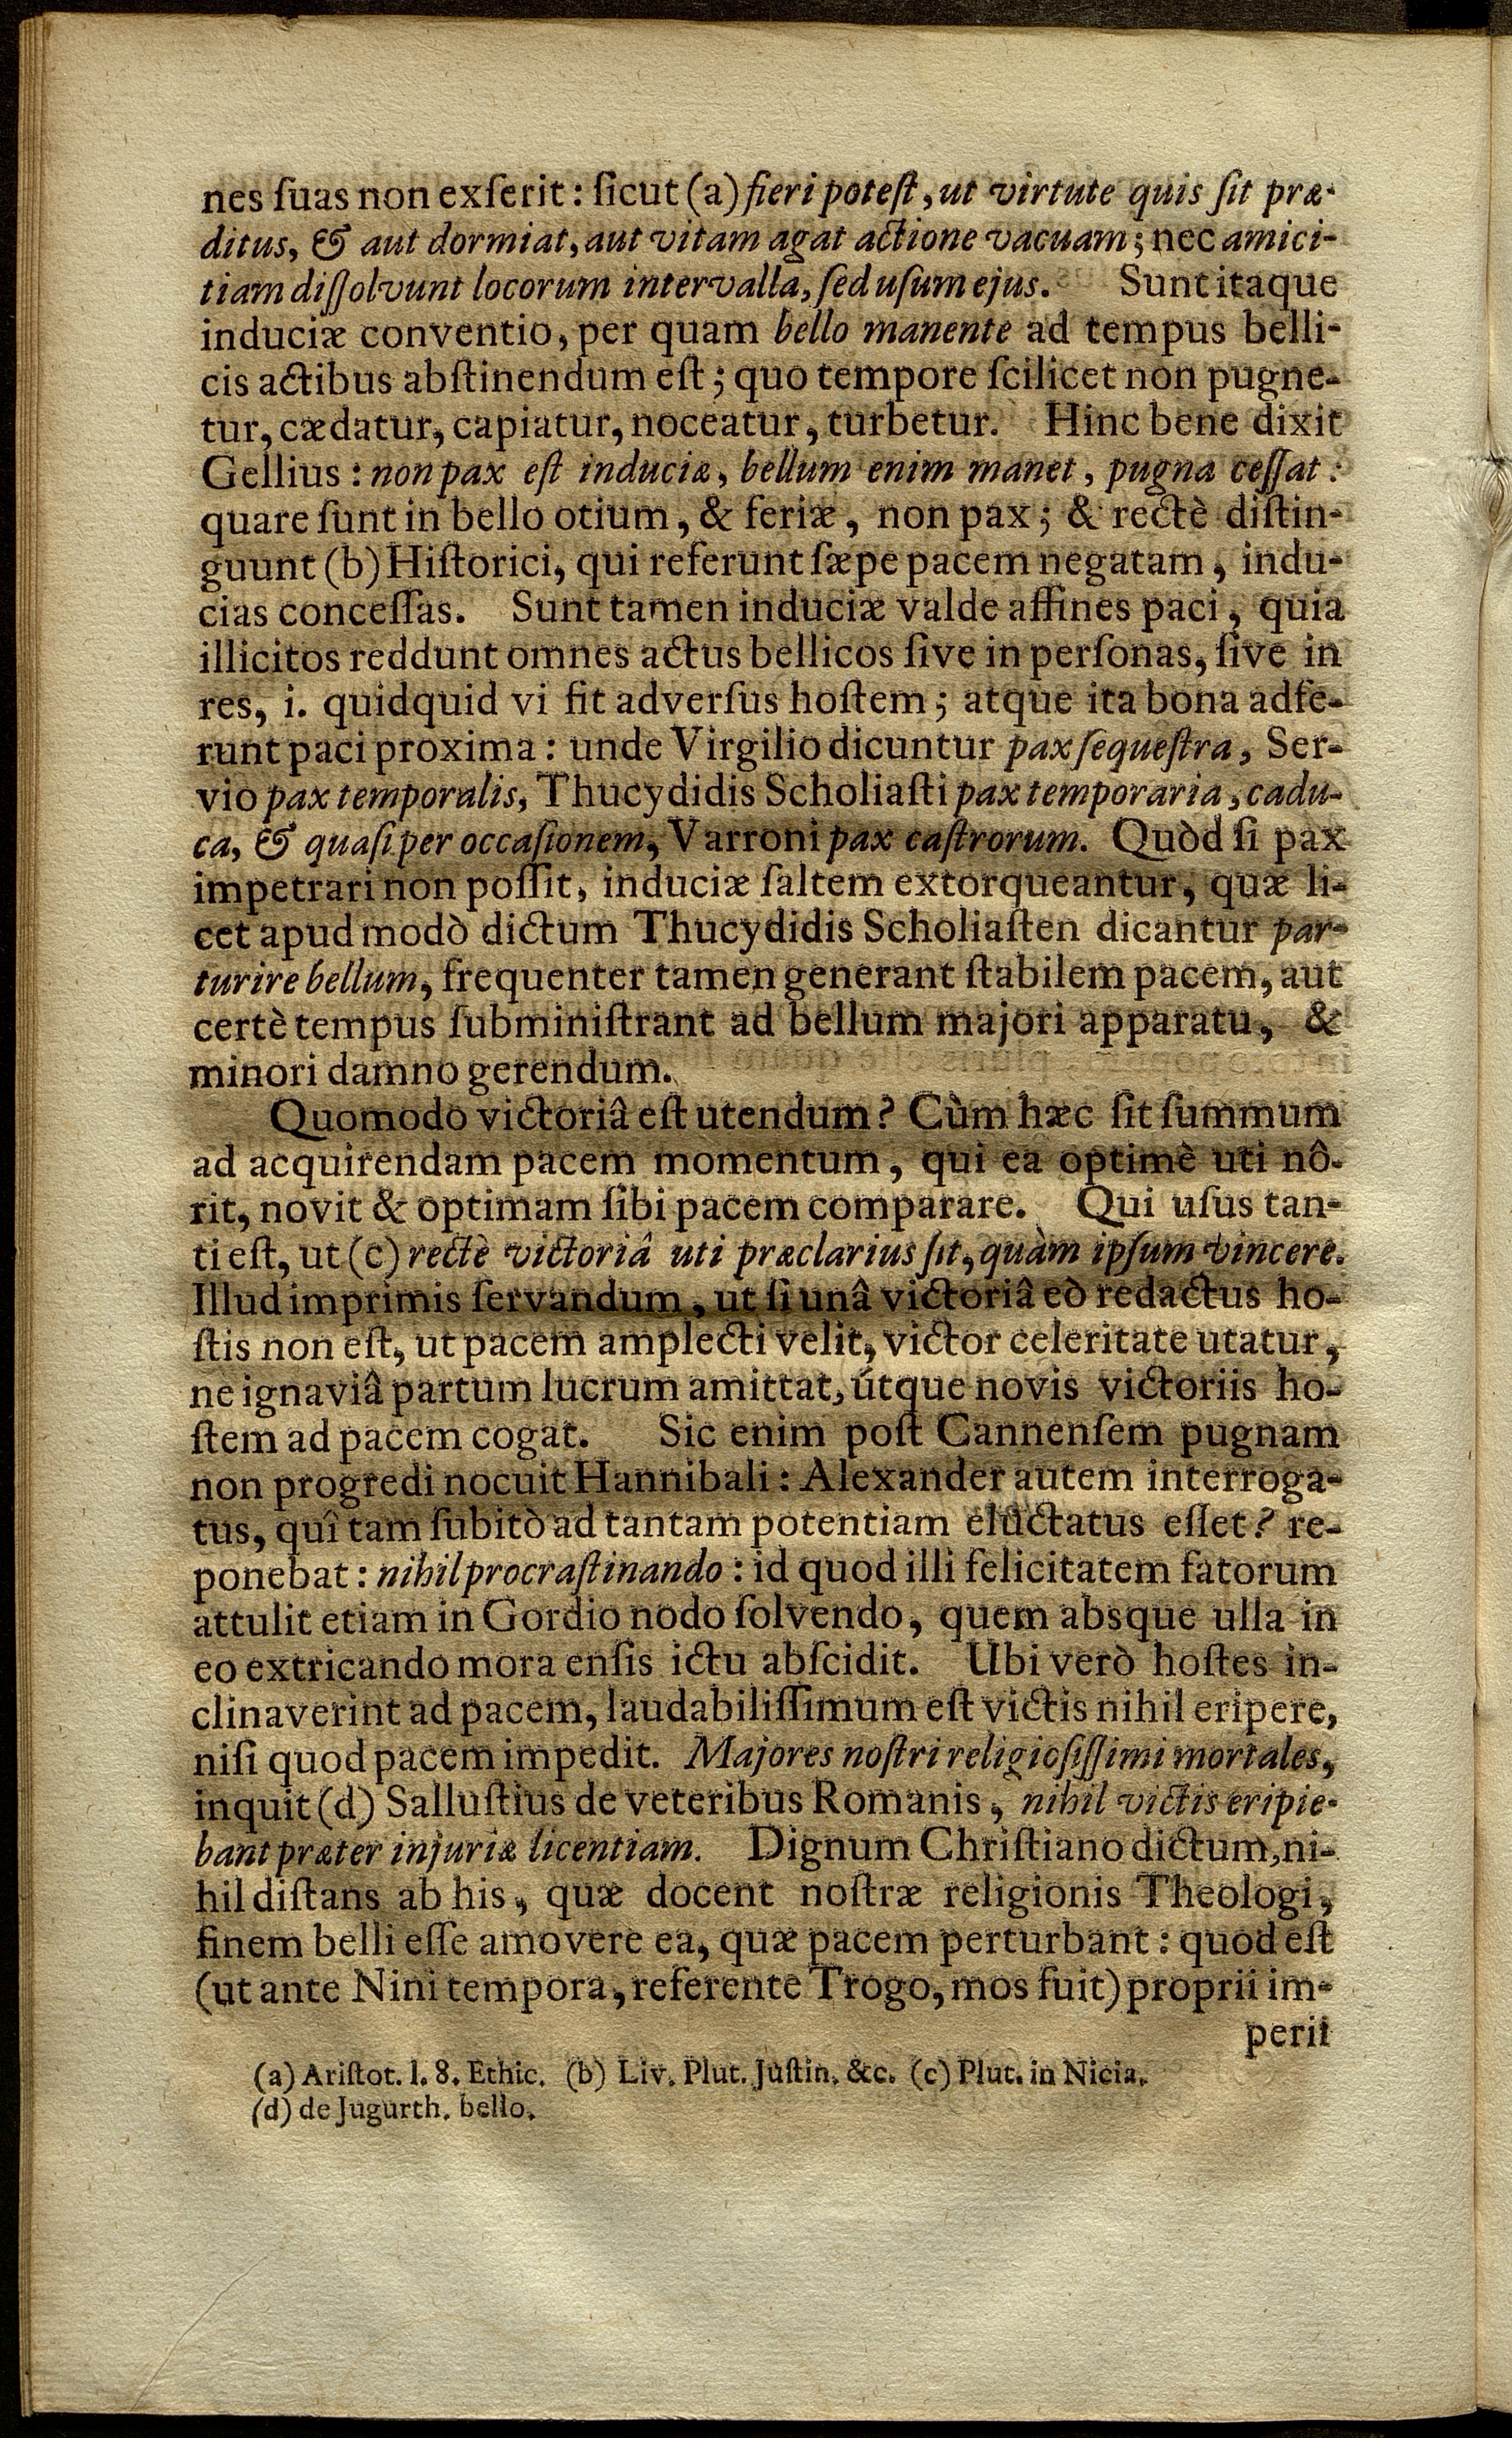 nes ſuas non exſerit: ſicut (a) fieri poteſt, ut virtute quis ſit præ-
ditus, & aut dormiat, aut vitam agat actione vacuam; nec amici-
tiam diſſolvunt locorum intervalla, ſed uſum ejus. Sunt itaque
induciæ conventio, per quam bello manente ad tempus belli-
cis actibus abſtinendum eſt; quo tempore ſcilicet non pugne-
tur, cædatur, capiatur, noceatur, turbetur. Hinc bene dixit
Gellius: non pax eſt induciæ, bellum enim manet, pugna ceſſat:
quare ſunt in bello otium, & feriæ, non pax; & rectè diſtin-
guunt (b) Hiſtorici, qui referunt ſæpe pacem negatam, indu-
cias conceſſas. Sunt tamen induciæ valde affines paci, quia
illicitos reddunt omnes actus bellicos ſive in perſonas, ſive in
res, i. quidquid vi fit adverſus hoſtem; atque ita bona adfe-
runt paci proxima: unde Virgilio dicuntur pax ſequeſtra, Ser-
vio pax temporalis, Thucydidis Scholiaſti pax temporaria, cadu-
ca, & quaſi per occaſionem, Varroni pax caſtrorum. Quòd ſi pax
impetrari non poſſit, induciæ ſaltem extorqueantur, quæ li-
cet apud modò dictum Thucydidis Scholiaſten dicantur par-
turire bellum, frequenter tamen generant ſtabilem pacem, aut
certè tempus ſubminiſtrant ad bellum majori apparatu, &
minori damno gerendum.
Quomodo victoriâ eſt utendum? Cùm hæc ſit ſummum
ad acquirendam pacem momentum, qui ea optimè uti nô-
rit, novit & optimam ſibi pacem comparare. Qui uſus tan-
ti eſt, ut (c) rectè victoriâ uti præclarius ſit, quàm ipſum vincere.
Illud imprimis ſervandum, ut ſi unâ victoriâ eò redactus ho-
ſtis non eſt, ut pacem amplecti velit, victor celeritate utatur,
ne ignaviâ partum lucrum amittat, útque novis victoriis ho-
ſtem ad pacem cogat. Sic enim poſt Cannenſem pugnam
non progredi nocuit Hannibali: Alexander autem interroga-
tus, quî tam ſubitò ad tantam potentiam eluctatus eſſet? re-
ponebat: nihil procraſtinando: id quod illi felicitatem fatorum
attulit etiam in Gordio nodo ſolvendo, quem absque ulla in
eo extricando mora enſis ictu abſcidit. Ubi verò hoſtes in-
clinaverint ad pacem, laudabiliſſimum eſt victis nihil eripere,
niſi quod pacem impedit. Majores noſtri religioſiſſimi mortales,
inquit (d) Salluſtius de veteribus Romanis, nihil victis eripie-
bant præter injuriæ licentiam. Dignum Chriſtiano dictum, ni-
hil diſtans ab his, quæ docent noſtræ religionis Theologi,
finem belli eſſe amovere ea, quæ pacem perturbant: quod eſt
(ut ante Nini tempora, referente Trogo, mos fuit) proprii im-
perii
(a) Ariſtot. l. 8. Ethic. (b) Liv. Plut. Juſtin. &c. (c) Plut. in Nicia.
(d) de Jugurth. bello.